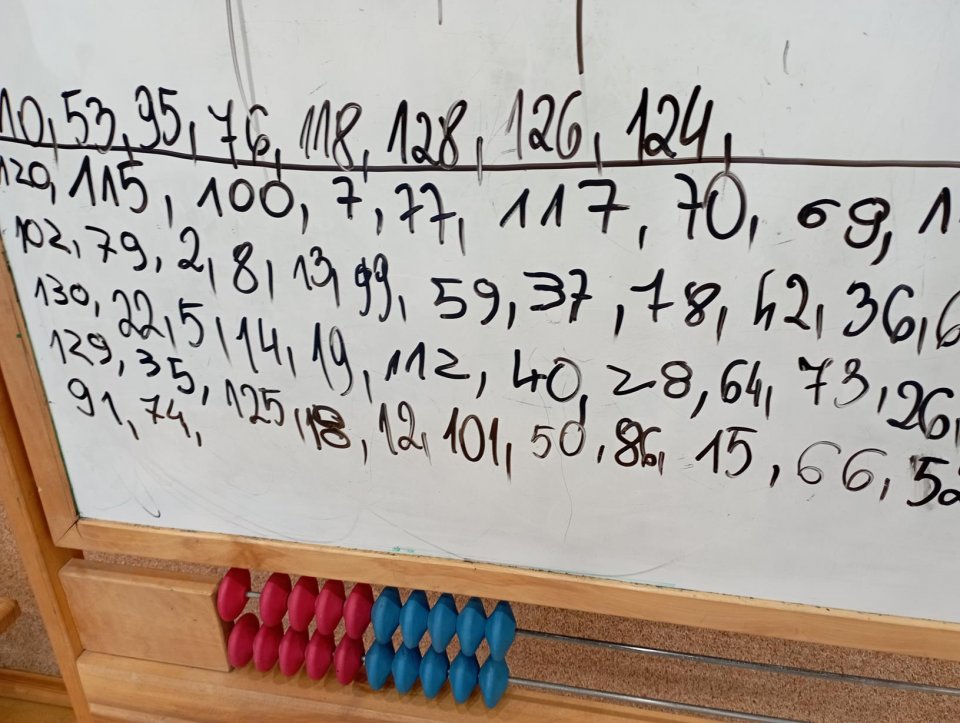 10, 53, 95, 76, 118, 128, 126, 124,
120, 115, 100, 7, 77, 117, 70, 69,
102, 79, 2, 8, 13, 99, 59, 37, 78, 42, 36,
130, 22, 5, 14, 19, 112, 40, 28, 64, 73, 26,
129, 35, 125, 18, 12, 101, 50, 86, 15, 66,
91, 74,